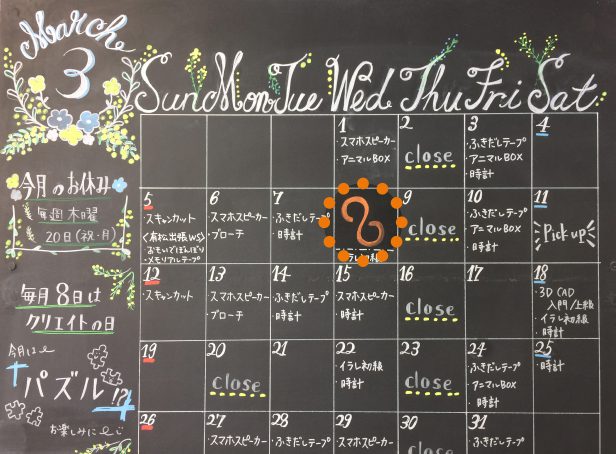 March
3
Sun Mon Tue Wed Thu Fri Sat
今月のお休み
毎週木曜
20日(祝・月)
毎月8日は
クリエイトの日
今月は
パズル!?
お楽しみに
1
・スマホスピーカー
・アニマルBOX
2
close
3
・ふきだしテープ
・アニマルBOX
・時計
4
5
・スキャンカット
<高松出張WS>
・おもいでぼんぼり
・メモリアルテープ
6
・スマホスピーカー
・ブローチ
7
・ふきだしテープ
・時計
9
close
10
・ふきだしテープ
・アニマルBOX
・時計
11
Pick up
12
・スキャンカット
13
・スマホスピーカー
・ブローチ
14
・ふきだしテープ
・時計
15
・スマホスピーカー
・時計
16
close
17
18
・3D CAD
入門/上級
・イラレ初級
・時計
19
20
close
21
22
・イラレ初級
・時計
23
close
24
・ふきだしテープ
・アニマルBOX
・時計
25
・時計
26
27
・スマホスピーカー
28
・ふきだしテープ
29
・スマホスピーカー
30
close
31
・ふきだしテープ